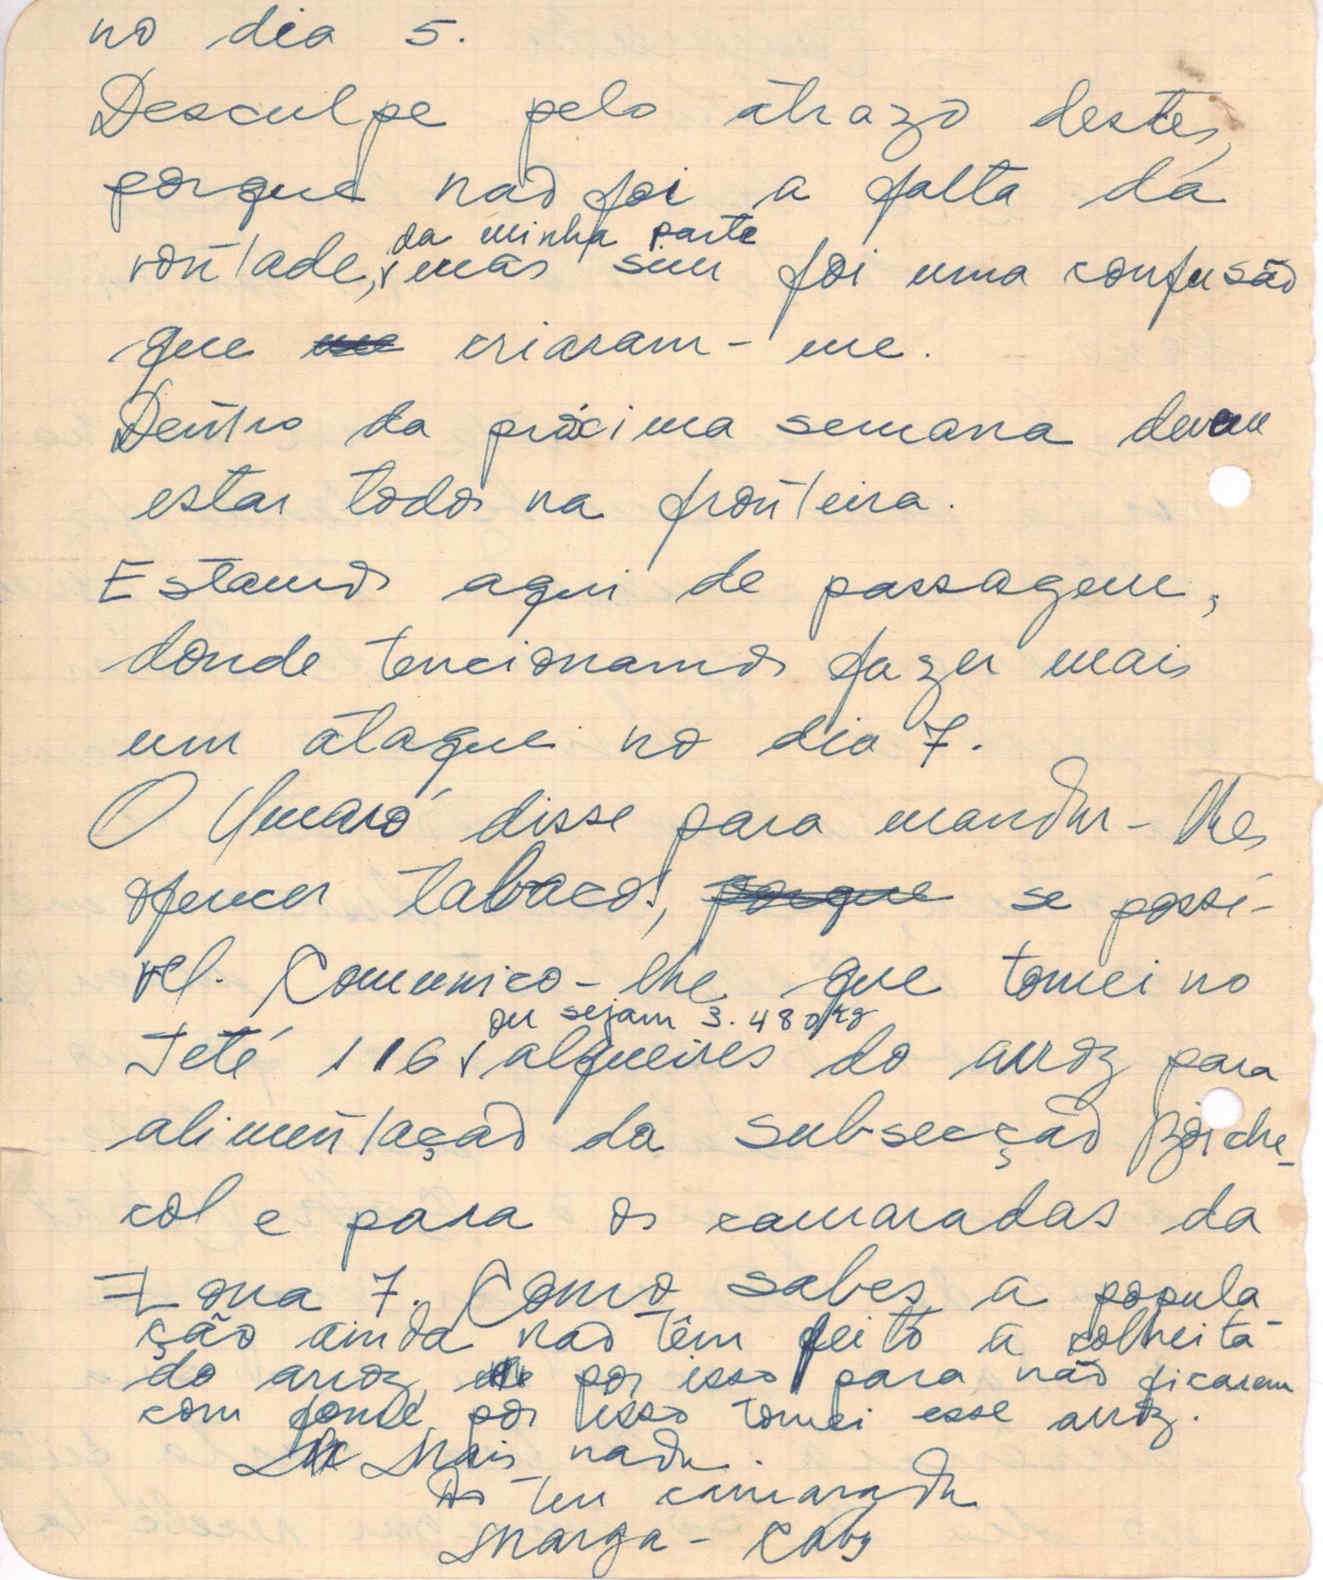 no dia 5.
Desculpe pelo atrazo destes,
porque não foi a falta da
da minha parte
vontade, mas sim foi uma confusão
que criaram-me.
Dentro da próxima semana devem
estar todos na fronteira.
Estamos aqui de passagem,
donde tencionamos fazer mais
um ataque no dia 7.
O Umaró disse para mandar-lhes
oferecer tabacos, porque se possí-
vel. Comunico-lhe que tomei no
ou sejam 3.480 kg
Jeté 116 alqueires do arroz para
alimentação da subsecção
col e para os camaradas da
Zona 7. Como sabes a popula
ção ainda não têm feito a colheita
do arroz, por isso para não ficarem
com fome, por isso tomei esse arroz.
Mais nada.
Do teu camarada
Marga - Caby